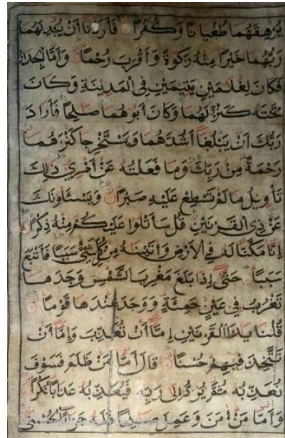 يُرْهِقَهُمَا طُغْيَانًا وَكُفْرًا فَأَرَدْنَا أَنْ يُبْدِلَهُمَا
رَبُّهُمَا خَيْرًا مِنْهُ زَكَوٰةً وَأَقْرَبَ رُحْمًا وَأَمَّا الْجِدَارُ
فَكَانَ لِغُلَمَيْنِ يَتِيمَيْنِ فِي الْمَدِينَةِ وَكَانَ
تَحْتَهُ كَنْزٌ لَهُمَا وَكَانَ أَبُوهُمَا صَلِحًا فَأَرَادَ
رَبُّكَ أَنْ يَبْلُغَا أَشُدَّهُمَا وَيَسْتَخْرِجَا كَنْزَهُمَا
رَحْمَةً مِنْ رَبِّكَ وَمَا فَعَلْتُهُ عَنْ أَمْرِي ذَلِكَ
تَأْوِيلُ مَا لَمْ تَسْطِعْ عَلَيْهِ صَبْرًا وَيَسْئَلُونَكَ
عَنْ ذِي الْقَرْنَيْنِ قُلْ سَأَتْلُوا عَلَيْكُمْ مِنْهُ ذِكْرًا
إِنَّا مَكَّنَّا لَهُ فِي الْأَرْضِ وَآتَيْنَهُ مِنْ كُلِّ شَيْءٍ سَبَبًا فَأَتْبَعَ
سَبَبًا حَتَّى إِذَا بَلَغَ مَغْرِبَ الشَّمْسِ وَجَدَهَا
تَغْرُبُ فِي عَيْنٍ حَمِئَةٍ وَوَجَدَ عِنْدَهَا قَوْمًا
قُلْنَا يَذَا الْقَرْنَيْنِ إِمَّا أَنْ تُعَذِّبَ وَإِمَّا أَنْ
تَتَّخِذَ فِيهِمْ حُسْنًا قَالَ أَمَّا مَنْ ظَلَمَ فَسَوْفَ
نُعَذِّبُهُ ثُمَّ يُرَدُّ إِلَى رَبِّهِ فَيُعَذِّبُهُ عَذَابًا نُكْرًا
وَأَمَّا مَنْ آمَنَ وَعَمِلَ صَلِحًا فَلَهُ جَزَاءً الْحُسْنَى